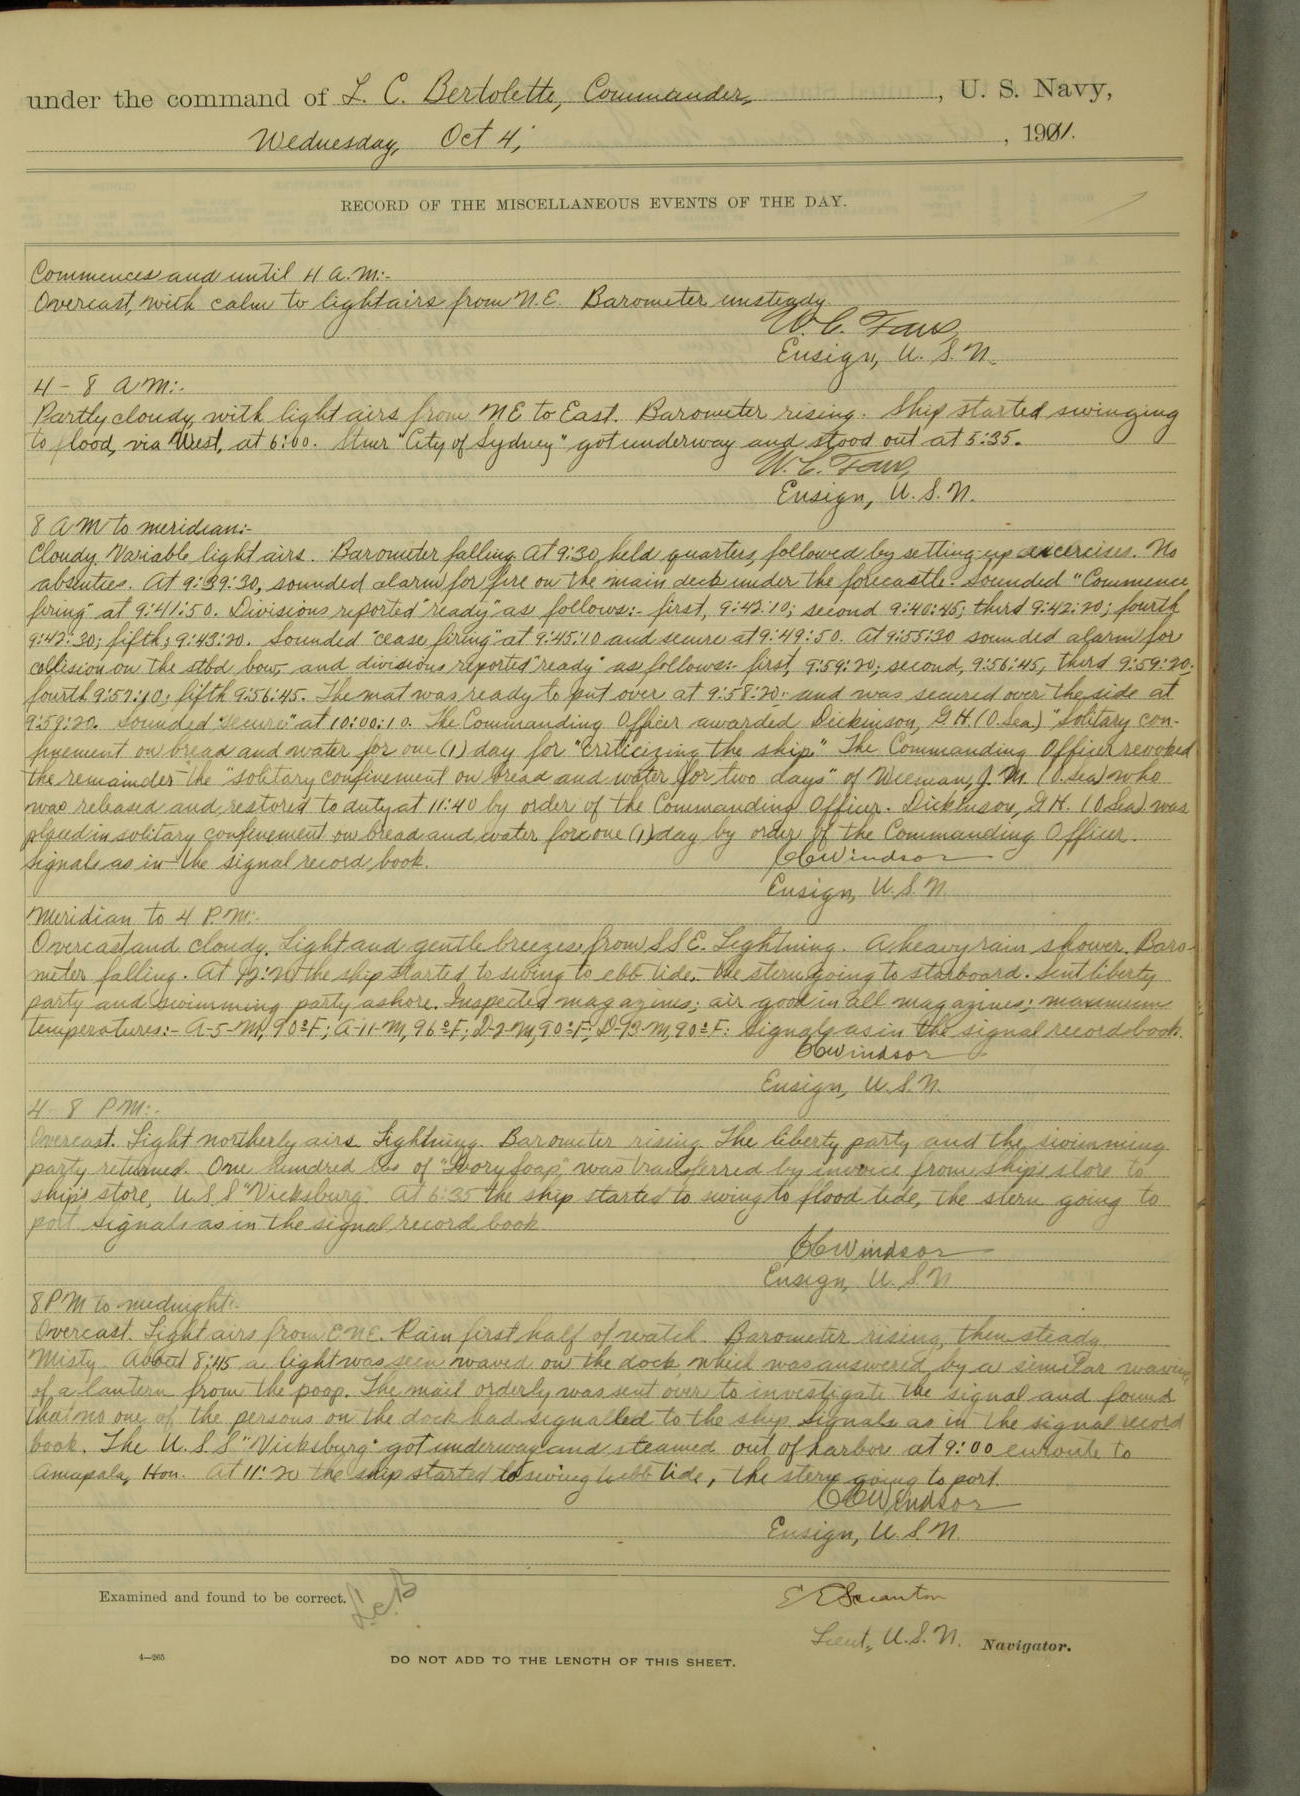 under the command of L. C. Bertolette, Commander, , U. S. Navy,
Wednesday, Oct 4, , 1911.
RECORD OF THE MISCELLANEOUS EVENTS OF THE DAY.
Commences and until 4 A.M:-
Overcast, with calm to light airs from N.E. Barometer unsteady.
W. C.
Ensign, U. S. N.
4 - 8 A M:-
Partly cloudy, with light airs from NE to East. Barometer rising. Ship started swinging
to flood, via West, at 6:00. Stmr "City of Sydney" got underway and stood out at 5:35.
W. C.
Ensign, U. S. N.
8 A M to meridian:-
Cloudy. Variable light airs. Barometer falling. At 9:30 held quarters, followed by setting-up exercises. No
absentees. At 9:39:30, sounded alarm for fire on the main deck under the forecastle. Sounded "Commence
firing" at 9:41:50. Divisions reported "ready" as follows:- first, 9:42:10; second 9:40:45; third 9:42:20; fourth
9:42:30; fifth, 9:43:20. Sounded "cease firing" at 9:45:10 and secure at 9:49:50. At 9:55:30 sounded alarm for
collision on the stbd bow, and divisions reported "ready" as follows:- first, 9:59:20; second, 9:56:45, third 9:59:20.
fourth 9:57:10; fifth 9:56:45. The mat was ready to put over at 9:58:20: and was secured over the side at
9:59:20. Sounded "secure" at 10:00:10. The Commanding Officer awarded Dickinson, G.H. (O.Sea) "solitary con-
finement on bread and water for one (1) day for "criticizing the ship." The Commanding Officer revoked
the remainder the "solitary confinement on bread and water for two days" of J. M. (O.Sea) who
was released and restored to duty at 11:40 by order of the Commanding Officer. Dickinson, G.H. (O Sea) was
placed in solitary confinement on bread and water for one (1) day by order of the Commanding Officer.
Signals as in the signal record book.
CC Windsor
Ensign, U. S. N.
Meridian to 4 P. M:-
Overcast and cloudy. Light and gentle breezes from SSE. Lightning. A heavy rain shower. Baro-
meter falling. At 12:20 the ship started to swing to ebb tide, the stern going to starboard. Sent liberty
party and swimming party ashore. Inspected magazines; air good in all magazines; maximum
temperatures:- A-5-M, 90°F; A-11-M, 96°F; D-2-M, 90°F; D-12-M, 90°F. Signals as in the signal record book.
CC Windsor
Ensign, U. S. N.
4 8 P M:-
Overcast. Light northerly airs. Lightning. Barometer rising. The liberty party and the swimming
party returned. One hundred lbs of "Ivory Soap," was transferred by invoice from ship's store to
ship's store, U. S. S "Vicksburg". At 6:35 the ship started to swing to flood tide, the stern going to
port. Signals as in the signal record book
CC Windsor
Ensign, U. S. N
8 P M to midnight:-
Overcast. Light airs from ENE. Rain first half of watch. Barometer rising, then steady.
Misty. About 8:45 a light was seen waved on the dock, which was answered by a similar waving
of a lantern from the poop. The mail orderly was sent over to investigate the signal and found
that no one of the persons on the dock had signalled to the ship. Signals as in the signal record
book. The U. S. S "Vicksburg" got underway and steamed out of harbor at 9:00 enroute to
Amapala, Hon. At 11:20 the ship started to swing to ebb tide, the stern going to port.
CC Windsor
Ensign, U. S. N.
Examined and found to be correct. L.C.B.
E E Scranton
Lieut., U. S. N. Navigator.
4—265
DO NOT ADD TO THE LENGTH OF THIS SHEET.